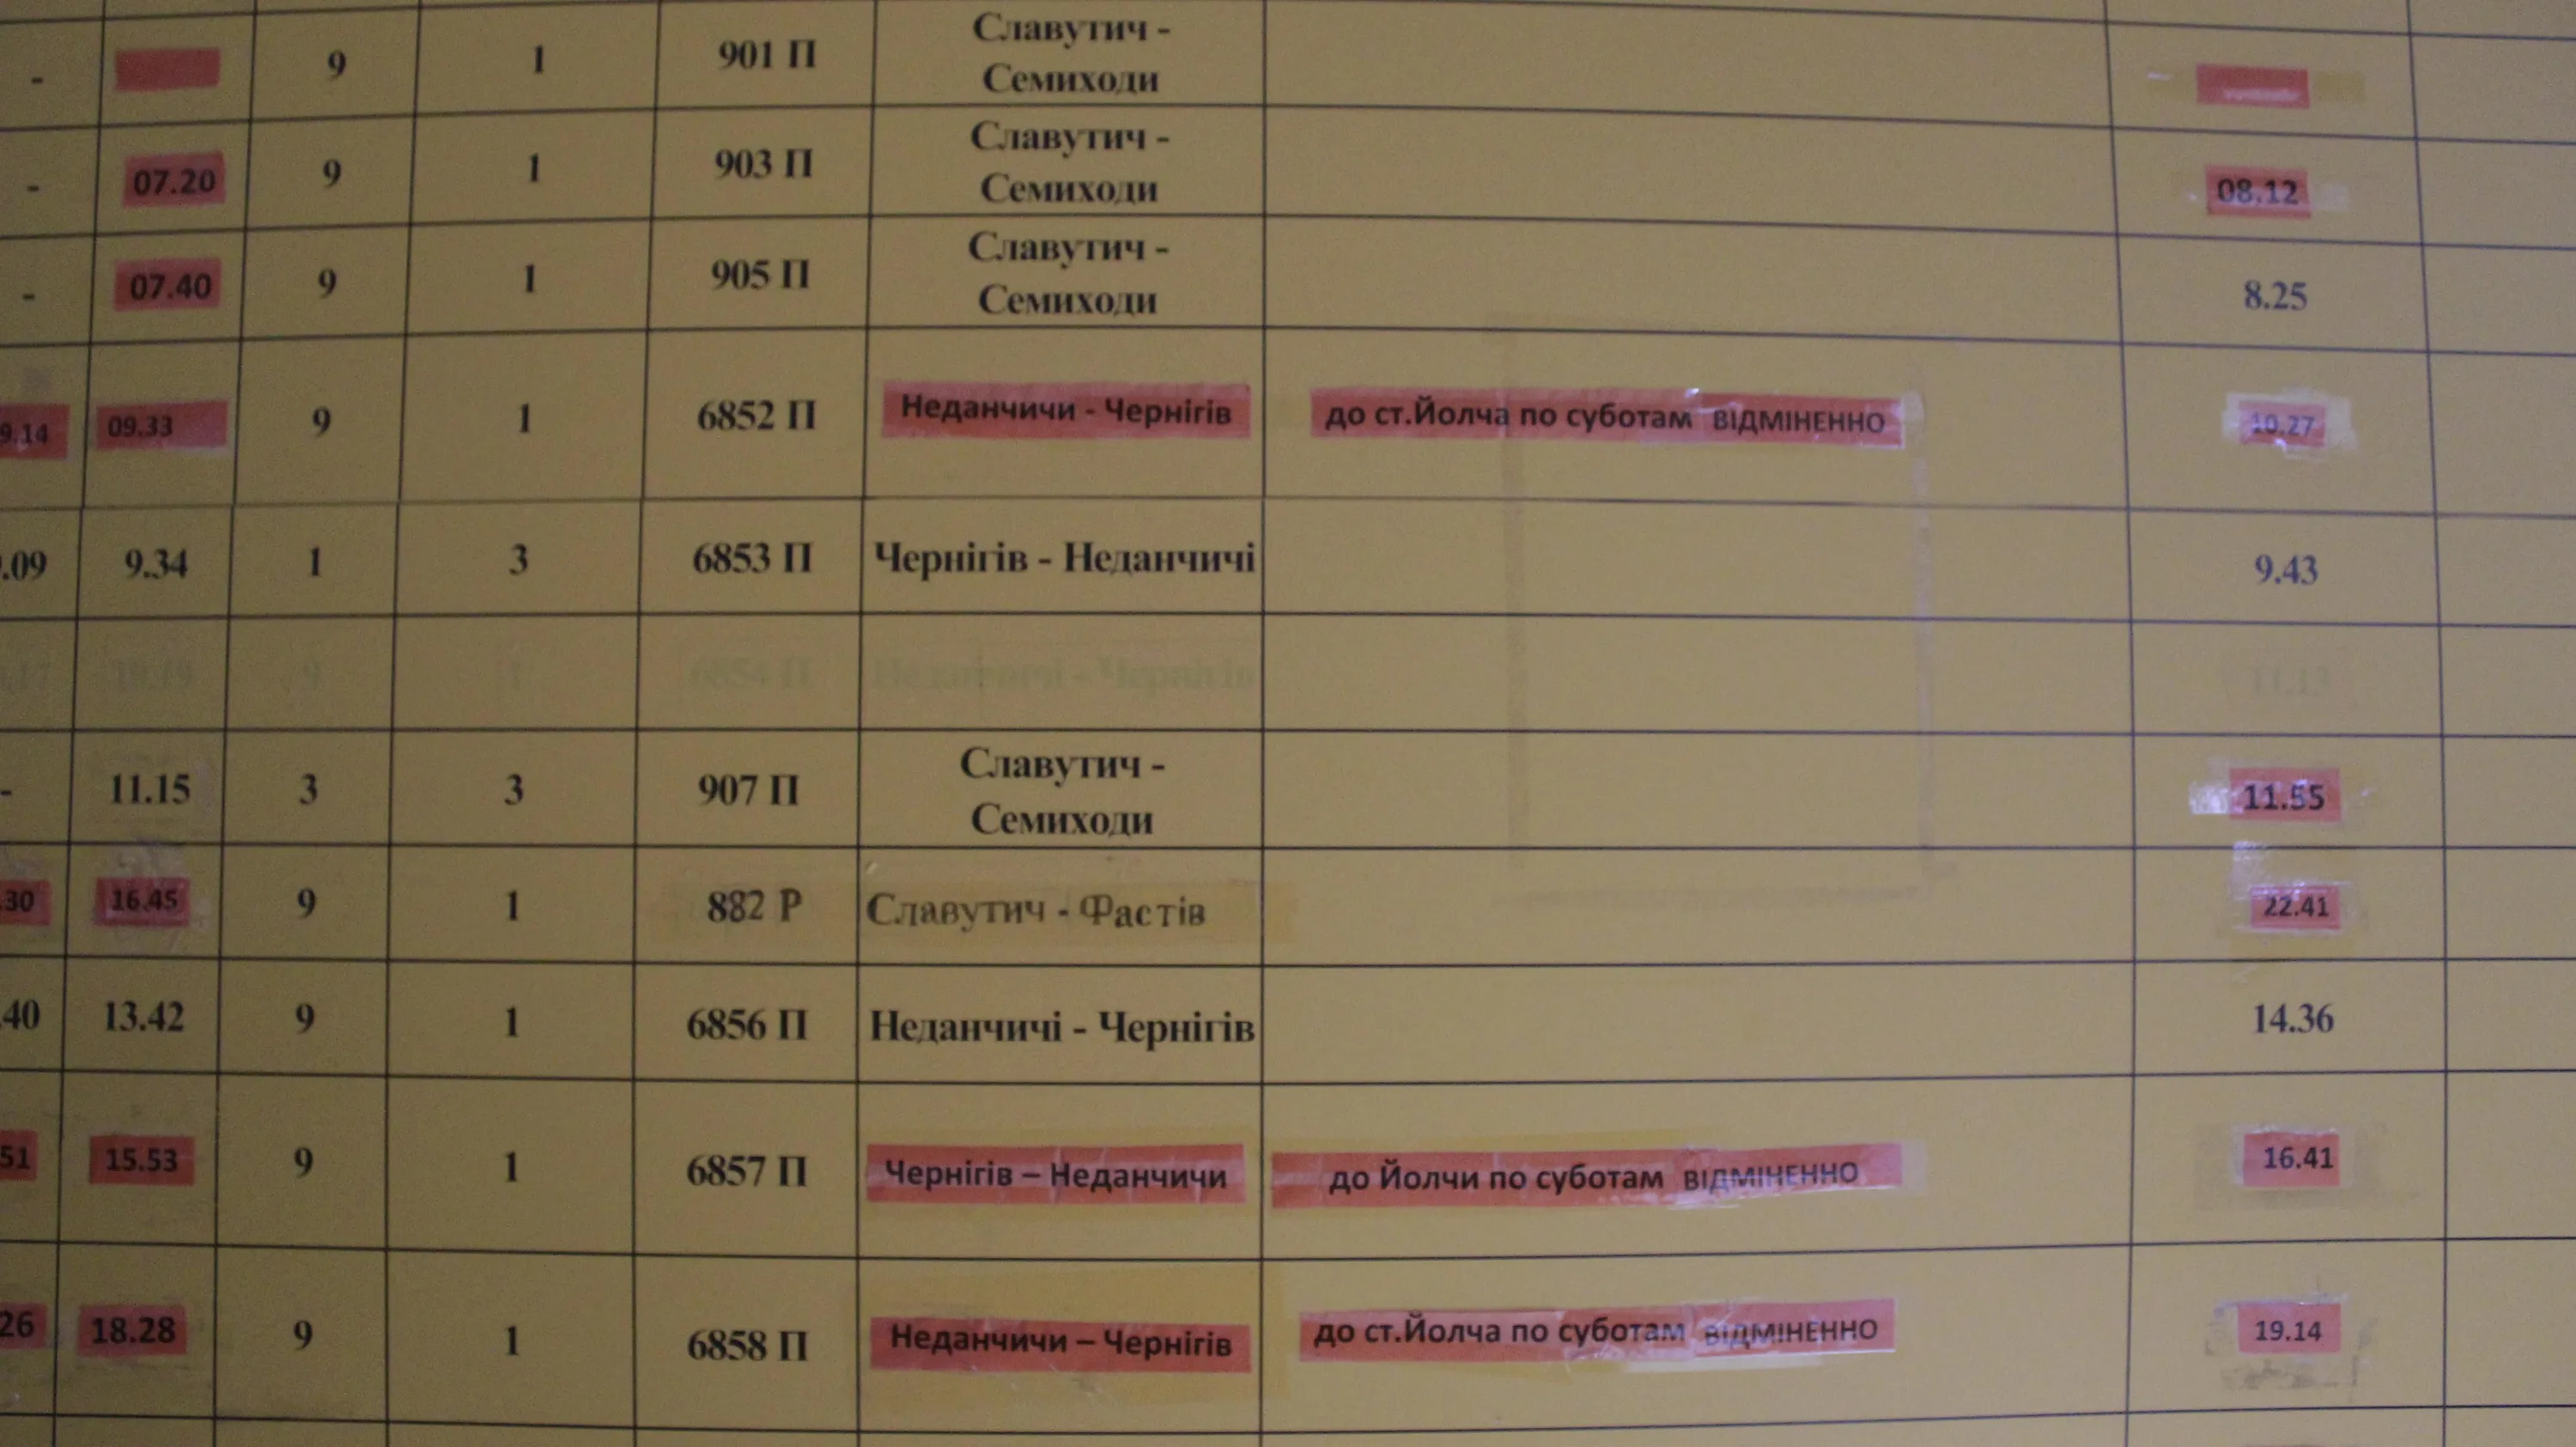 - 9 1 901 П Славутич -
Семиходи
- 07.20 9 1 903 П Славутич -
Семиходи 08.12
- 07.40 9 1 905 П Славутич -
Семиходи 8.25
9.14 09.33 9 1 6852 П Неданчичи - Чернігів до ст.Йолча по суботам ВІДМІНЕННО 10.27
.09 9.34 1 3 6853 П Чернігів - Неданчичі 9.43
6854 П Неданчичі - Чернігів
- 11.15 3 3 907 П Славутич -
Семиходи 11.55
.30 16.45 9 1 882 Р Славутич - Фастів 22.41
.40 13.42 9 1 6856 П Неданчичі - Чернігів 14.36
51 15.53 9 1 6857 П Чернігів – Неданчичи до Йолчи по суботам ВІДМІНЕННО 16.41
26 18.28 9 1 6858 П Неданчичи – Чернігів до ст.Йолча по суботам ВІДМІНЕННО 19.14